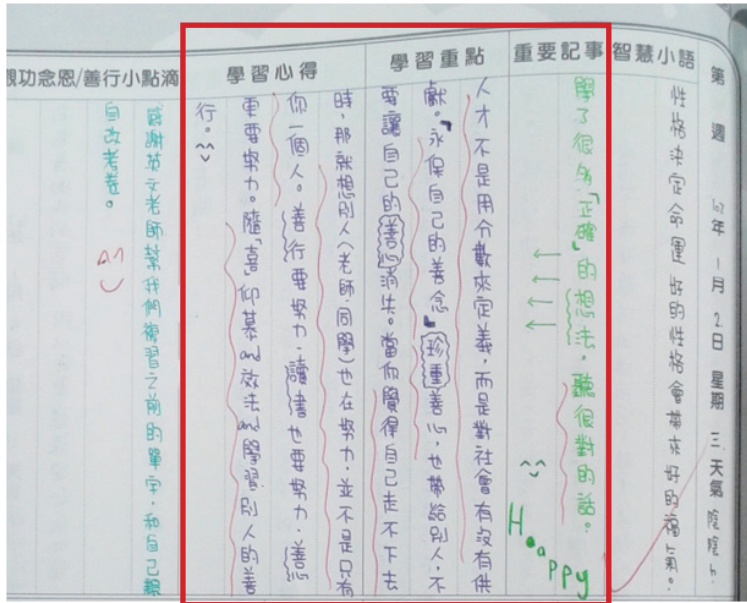 第 週 102年 1月 2日 星期 三 天氣 陰陰ㄉ
智慧小語
性格決定命運 好的性格會帶來好的福氣。
重要記事
學了很多「正確」的想法,聽很對的話。
^^
Happy
學習重點
人才不是用分數來定義,而是對社會有沒有供
獻。「永保自己的善念」珍重善心,也帶給別人,不
要讓自己的善心消失。當你覺得自己走不下去
學習心得
時,那就想別人(老師.同學)也在努力.並不是只有
你一個人。善行要努力.讀書也要努力.善心
更要努力。隨「喜」仰慕and效法and學習別人的善
行。^^
觀功念恩/善行小點滴
感謝英文老師幫我們複習之前的單字.和自己親
自改考卷。